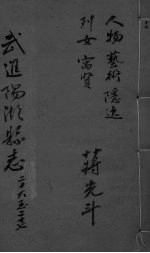 人物藝術隱逸
列女寓賢
蔣光斗
武進陽湖縣志